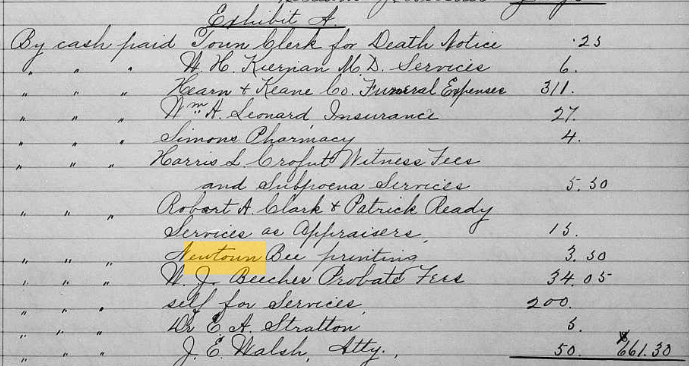 Exhibit A.
By cash paid Town Clerk for Death Notice .25
" " " W. H. Kiernan M.D. Services 6.
" " " Hearn & Keane Co. Funeral Expenses 311.
" " " Wm A. Leonard Insurance 27.
" " " Simons Pharmacy 4.
" " " Harris S. Crofut Witness Fees
and Subpoena Services 5.50
" " " Robert A. Clark & Patrick Ready
Services as Appraisers, 15.
" " " Newtown Bee printing 3.50
" " " W. J. Beecher Probate Fees 34.05
" " " self for Services, 200.
" " " Dr E. A. Stratton 5.
" " " J. E. Walsh, Atty., 50. 661.30